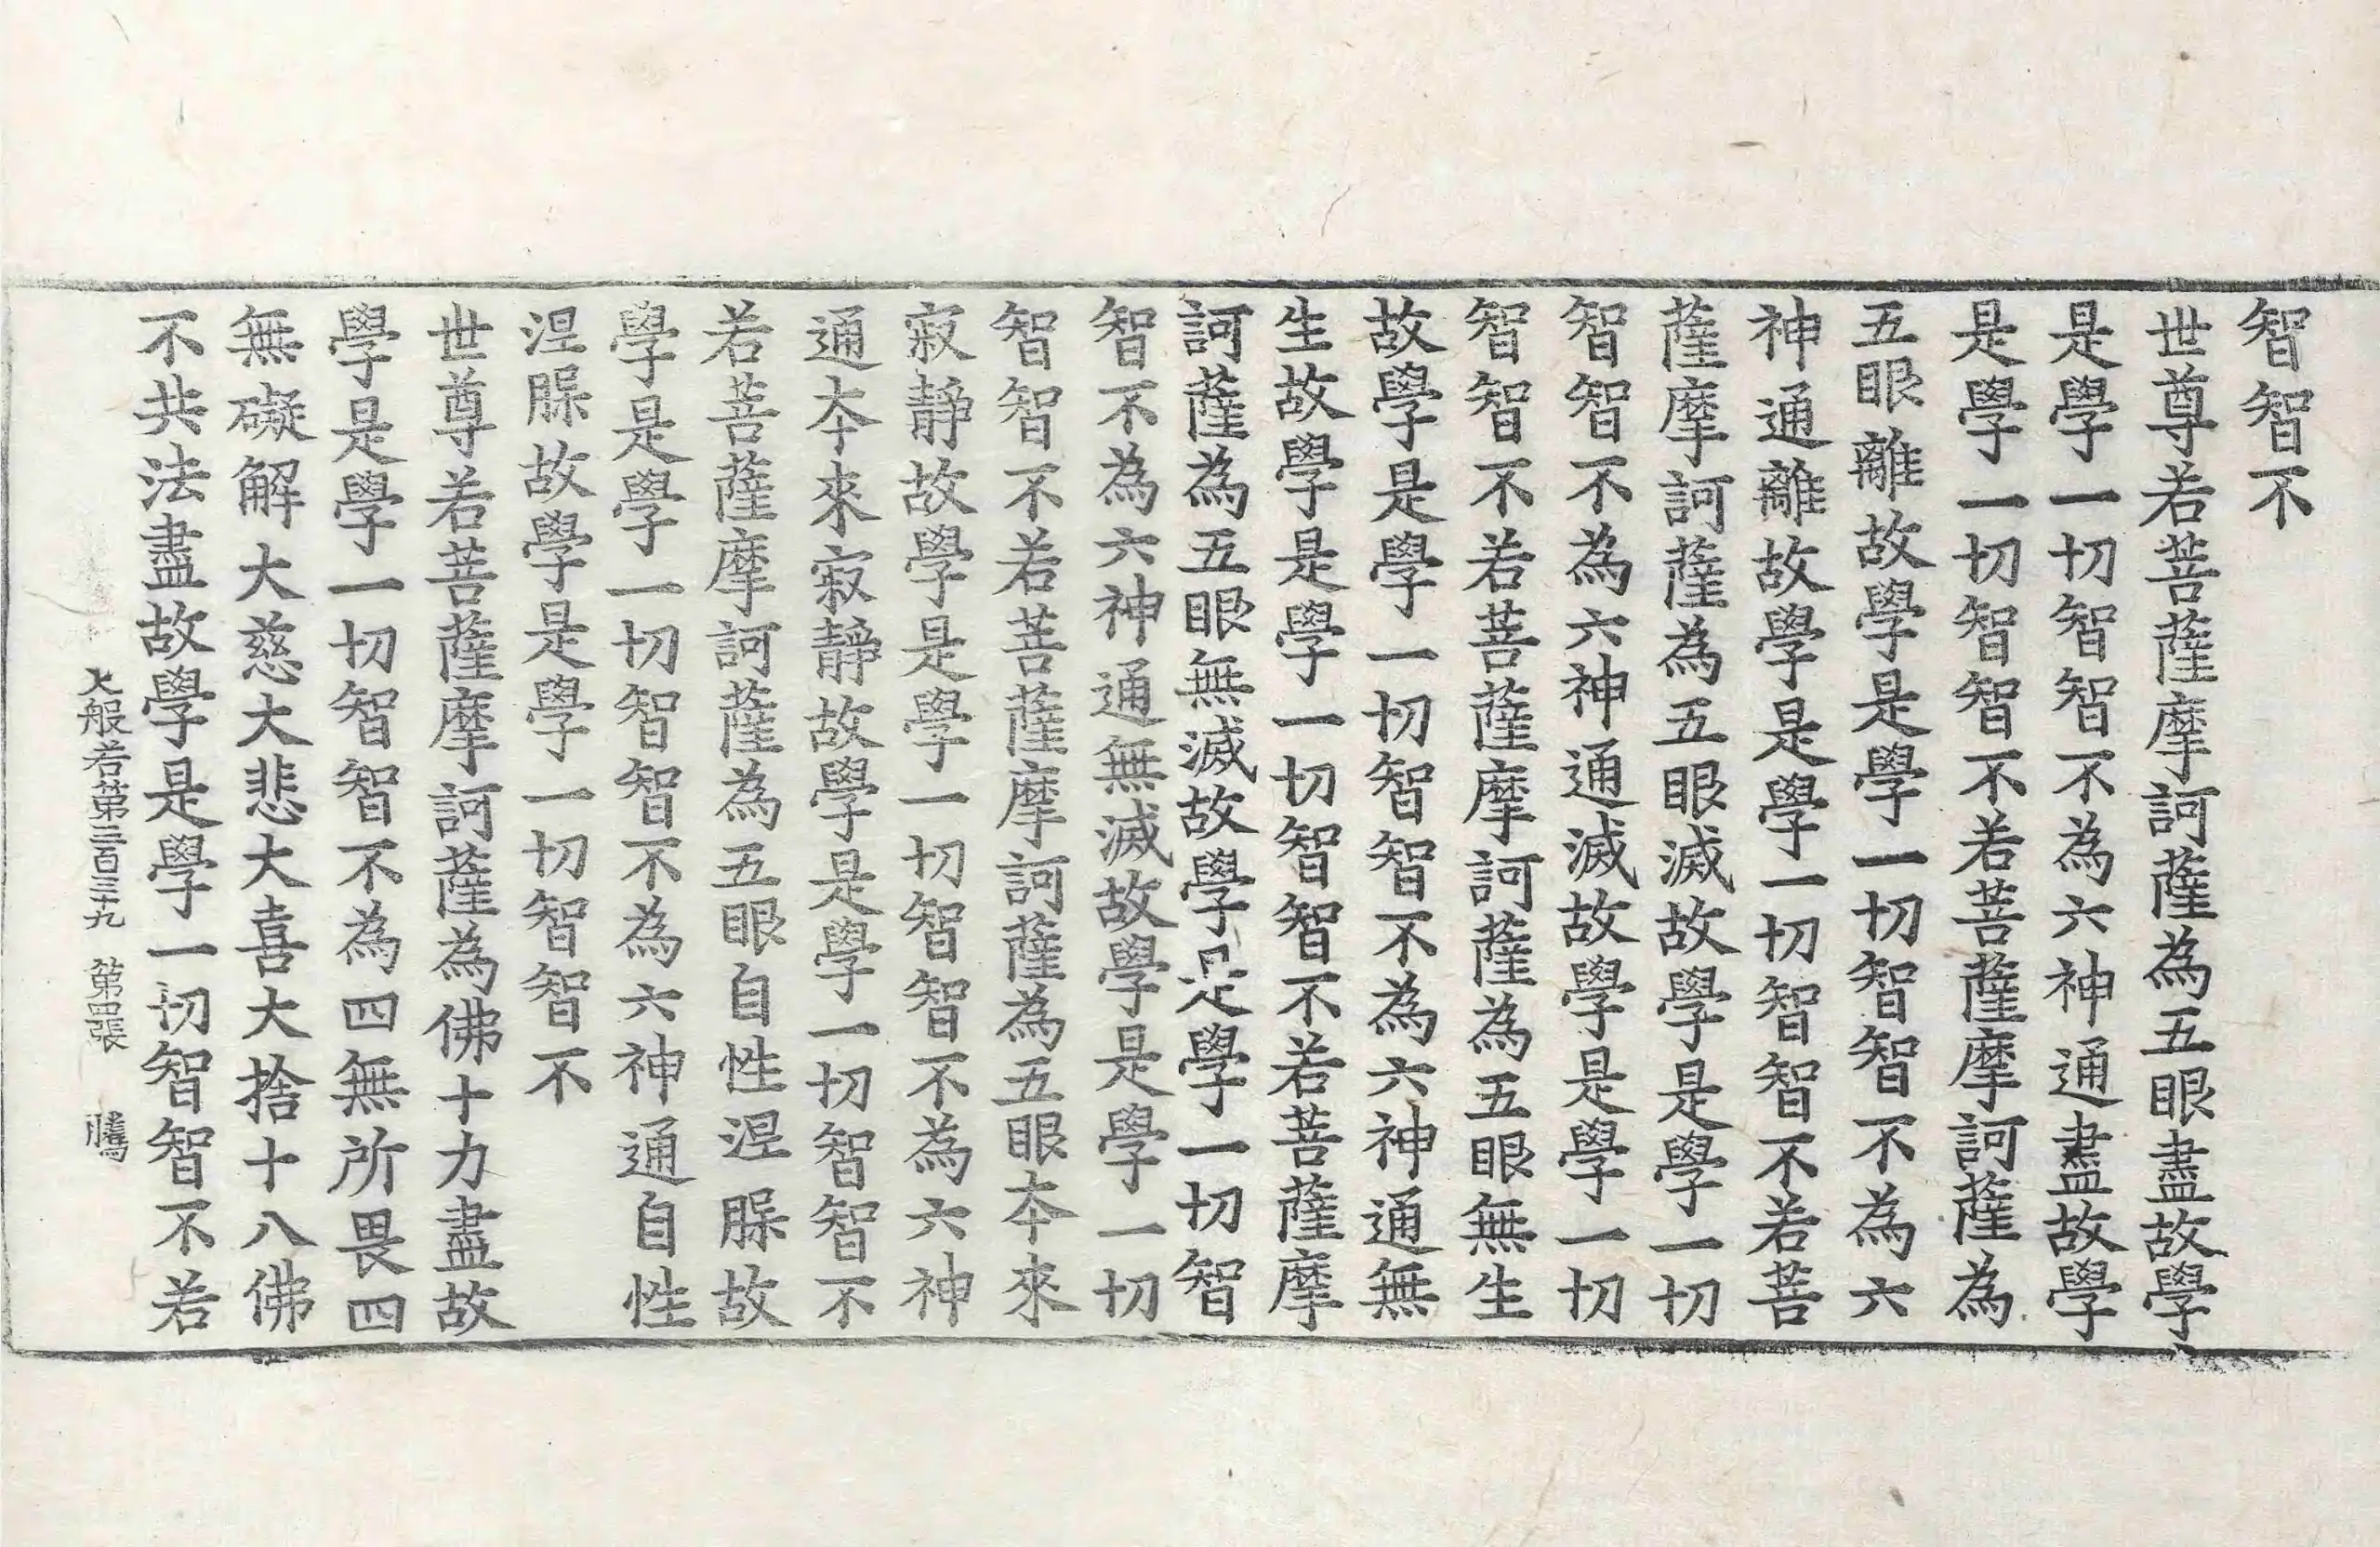 智智不
世尊若菩薩摩訶薩為五眼盡故學
是學一切智智不為六神通盡故學
是學一切智智不若菩薩摩訶薩為
五眼離故學是學一切智智不為六
神通離故學是學一切智智不若菩
薩摩訶薩為五眼滅故學是學一切
智智不為六神通滅故學是學一切
智智不若菩薩摩訶薩為五眼無生
故學是學一切智智不為六神通無
生故學是學一切智智不若菩薩摩
訶薩為五眼無滅故學是學一切智
智不為六神通無滅故學是學一切
智智不若菩薩摩訶薩為五眼夲來
寂靜故學是學一切智智不為六神
通夲來寂靜故學是學一切智智不
若菩薩摩訶薩為五眼自性涅腺故
學是學一切智智不為六神通自性
涅腺故學是學一切智智不
世尊若菩薩摩訶薩為佛十力盡故
學是學一切智智不為四無所畏四
無礙解大慈大悲大喜大捨十八佛
不共法盡故學是學一切智智不若
大般若第三百三十九 第四張 騰